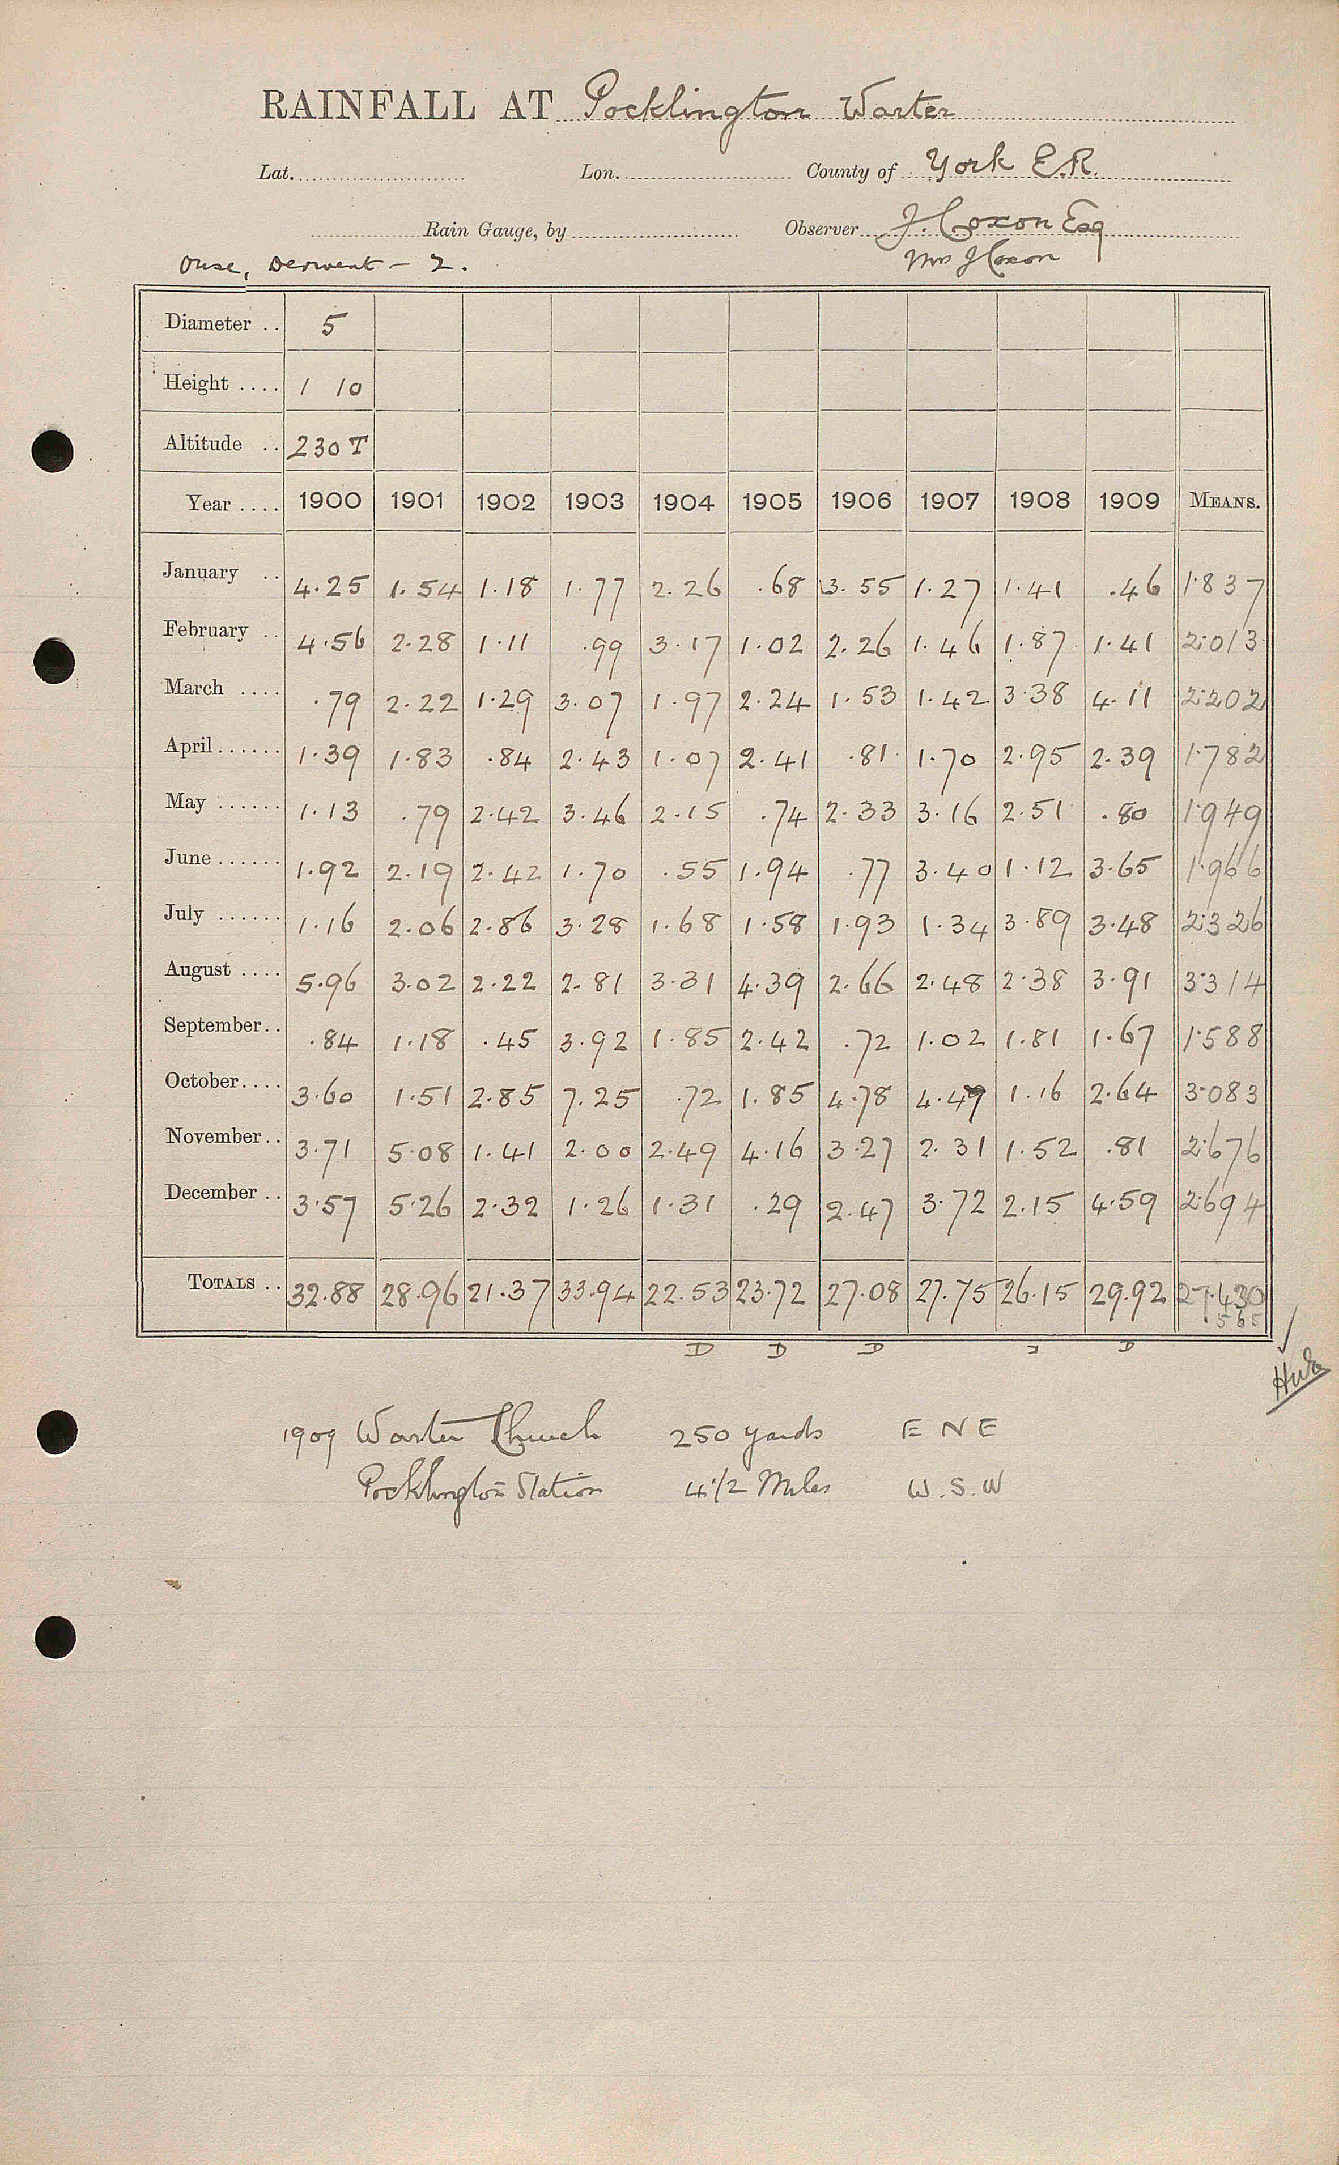 RAINFALL AT Pocklington Warter
Lat. Lon. County of York E.R.
Rain Gauge, by Observer J. Coxon Esq
Ouse, Derwent - 2. Mrs J Coxon
Diameter .. 5
Height .... 1 10
Altitude .. 230 T
Year .... 1900 1901 1902 1903 1904 1905 1906 1907 1908 1909 MEANS.
January .. 4.25 1.54 1.18 1.77 2.26 .68 3.55 1.27 1.41 .46 1.837
February .. 4.56 2.28 1.11 .99 3.17 1.02 2.26 1.46 1.87 1.41 2.013
March .... .79 2.22 1.29 3.07 1.97 2.24 1.53 1.42 3.38 4.11 2.202
April...... 1.39 1.83 .84 2.43 1.07 2.41 .81 1.70 2.95 2.39 1.782
May ...... 1.13 .79 2.42 3.46 2.15 .74 2.33 3.16 2.51 .80 1.949
June ...... 1.92 2.19 2.42 1.70 .55 1.94 .77 3.40 1.12 3.65 1.966
July ...... 1.16 2.06 2.86 3.28 1.68 1.58 1.93 1.34 3.89 3.48 2.326
August .... 5.96 3.02 2.22 2.81 3.31 4.39 2.66 2.48 2.38 3.91 3.314
September.. .84 1.18 .45 3.92 1.85 2.42 .72 1.02 1.81 1.67 1.588
October.... 3.60 1.51 2.85 7.25 .72 1.85 4.78 4.49 1.16 2.64 3.083
November.. 3.71 5.08 1.41 2.00 2.49 4.16 3.27 2.31 1.52 .81 2.676
December .. 3.57 5.26 2.32 1.26 1.31 .29 2.47 3.72 2.15 4.59 2.694
TOTALS .. 32.88 28.96 21.37 33.94 22.53 23.72 27.08 27.75 26.15 29.92 27.430
.565
D D D D
1909 Warter Church 250 yards E N E
Pocklington Station 4 1/2 Miles W.S.W